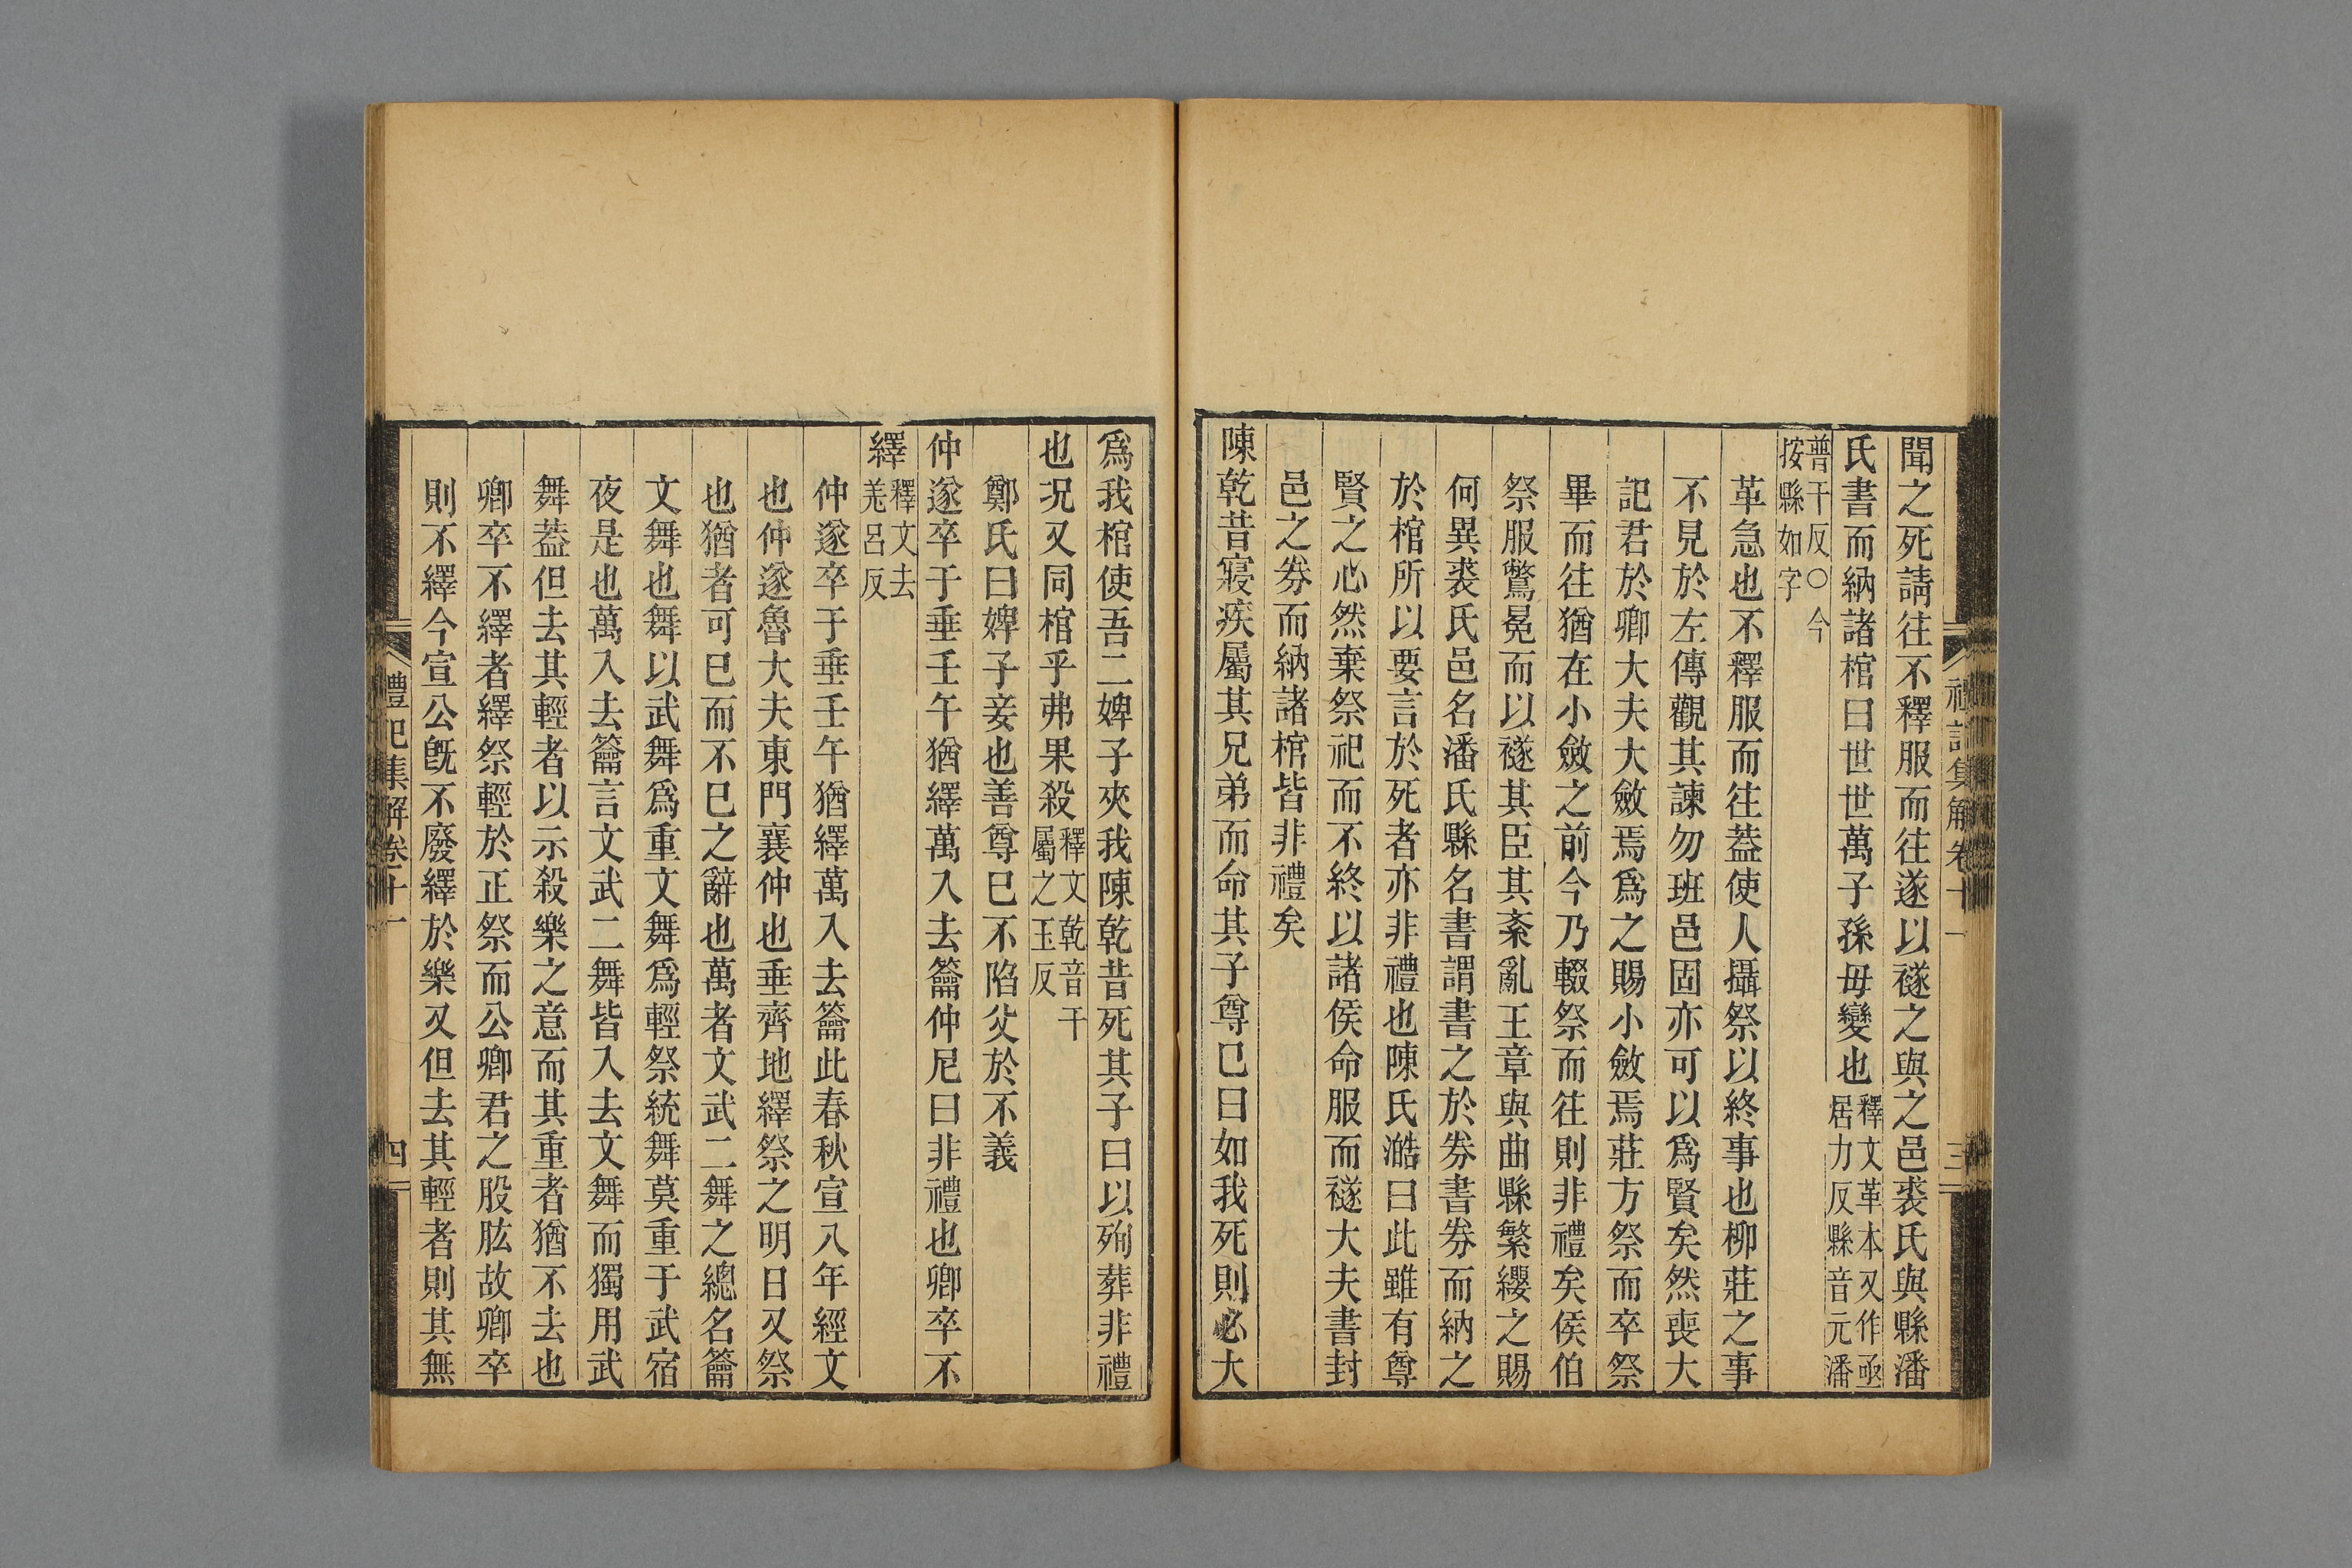 聞之死請往不釋服而往遂以襚之與之邑裘氏與縣潘
氏書而納諸棺曰世世萬子孫毋變也釋文革本又作亟居力反縣音元潘
普干反○今按縣如字
革急也不釋服而往蓋使人攝祭以終事也柳莊之事
不見於左傳觀其諫勿班邑固亦可以爲賢矣然喪大
記君於卿大夫大斂焉爲之賜小斂焉莊方祭而卒祭
畢而往猶在小斂之前今乃輟祭而往則非禮矣侯伯
祭服鷩冕而以襚其臣其紊亂王章與曲縣繁纓之賜
何異裘氏邑名潘氏縣名書謂書之於券書券而納之
於棺所以要言於死者亦非禮也陳氏澔曰此雖有尊
賢之心然棄祭祀而不終以諸侯命服而襚大夫書封
邑之券而納諸棺皆非禮矣
陳乾昔寢疾屬其兄弟而命其子尊已曰如我死則必大
禮記集解卷十一
三
爲我棺使吾二婢子夾我陳乾昔死其子曰以殉葬非禮
也況又同棺乎弗果殺釋文乾音干屬之玉反
鄭氏曰婢子妾也善尊已不陷父於不義
仲遂卒于垂壬午猶繹萬入去籥仲尼曰非禮也卿卒不
繹釋文去羌呂反
仲遂卒于垂壬午猶繹萬入去籥此春秋宣八年經文
也仲遂魯大夫東門襄仲也垂齊地繹祭之明日又祭
也猶者可已而不已之辭也萬者文武二舞之總名籥
文舞也舞以武舞爲重文舞爲輕祭統舞莫重于武宿
夜是也萬入去籥言文武二舞皆入去文舞而獨用武
舞蓋但去其輕者以示殺樂之意而其重者猶不去也
卿卒不繹者繹祭輕於正祭而公卿君之股肱故卿卒
則不繹今宣公旣不廢繹於樂又但去其輕者則其無
禮記集解卷十一
四